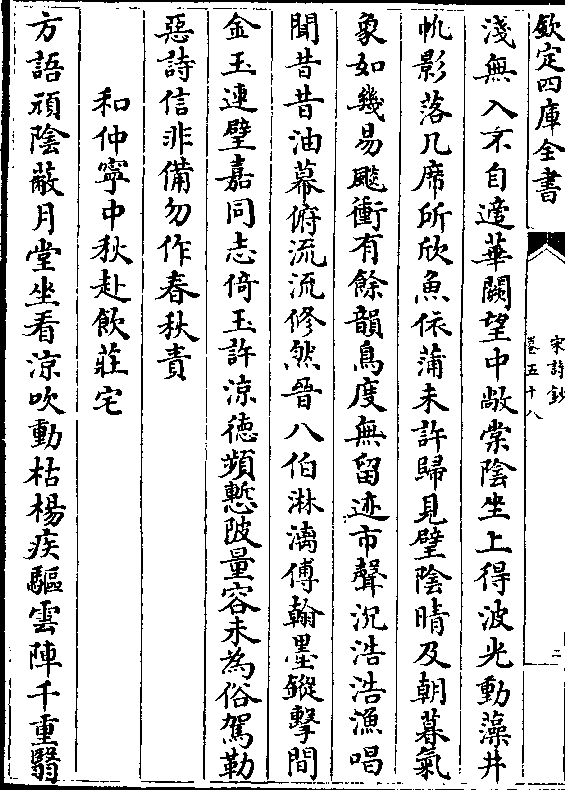 欽定四庫全書
宋詩鈔
卷五十八
二
淺無入不自適華闕望中敞棠陰坐上得波光動藻井
帆影落几席所欣魚依蒲未許歸見壁陰晴及朝暮氣
象如幾易颷衝有餘韻鳥度無留迹市聲沉浩浩漁唱
聞昔昔油幕俯流流修然晉八伯淋漓傅翰墨鏦擊間
金玉連璧嘉同志倚玉許涼德頻慙陂量容未為俗駕勒
惡詩信非備勿作春秋責
和仲寧中秋赴飲莊宅
方語頑陰蔽月堂坐看涼吹動枯楊疾驅雲陣千重翳